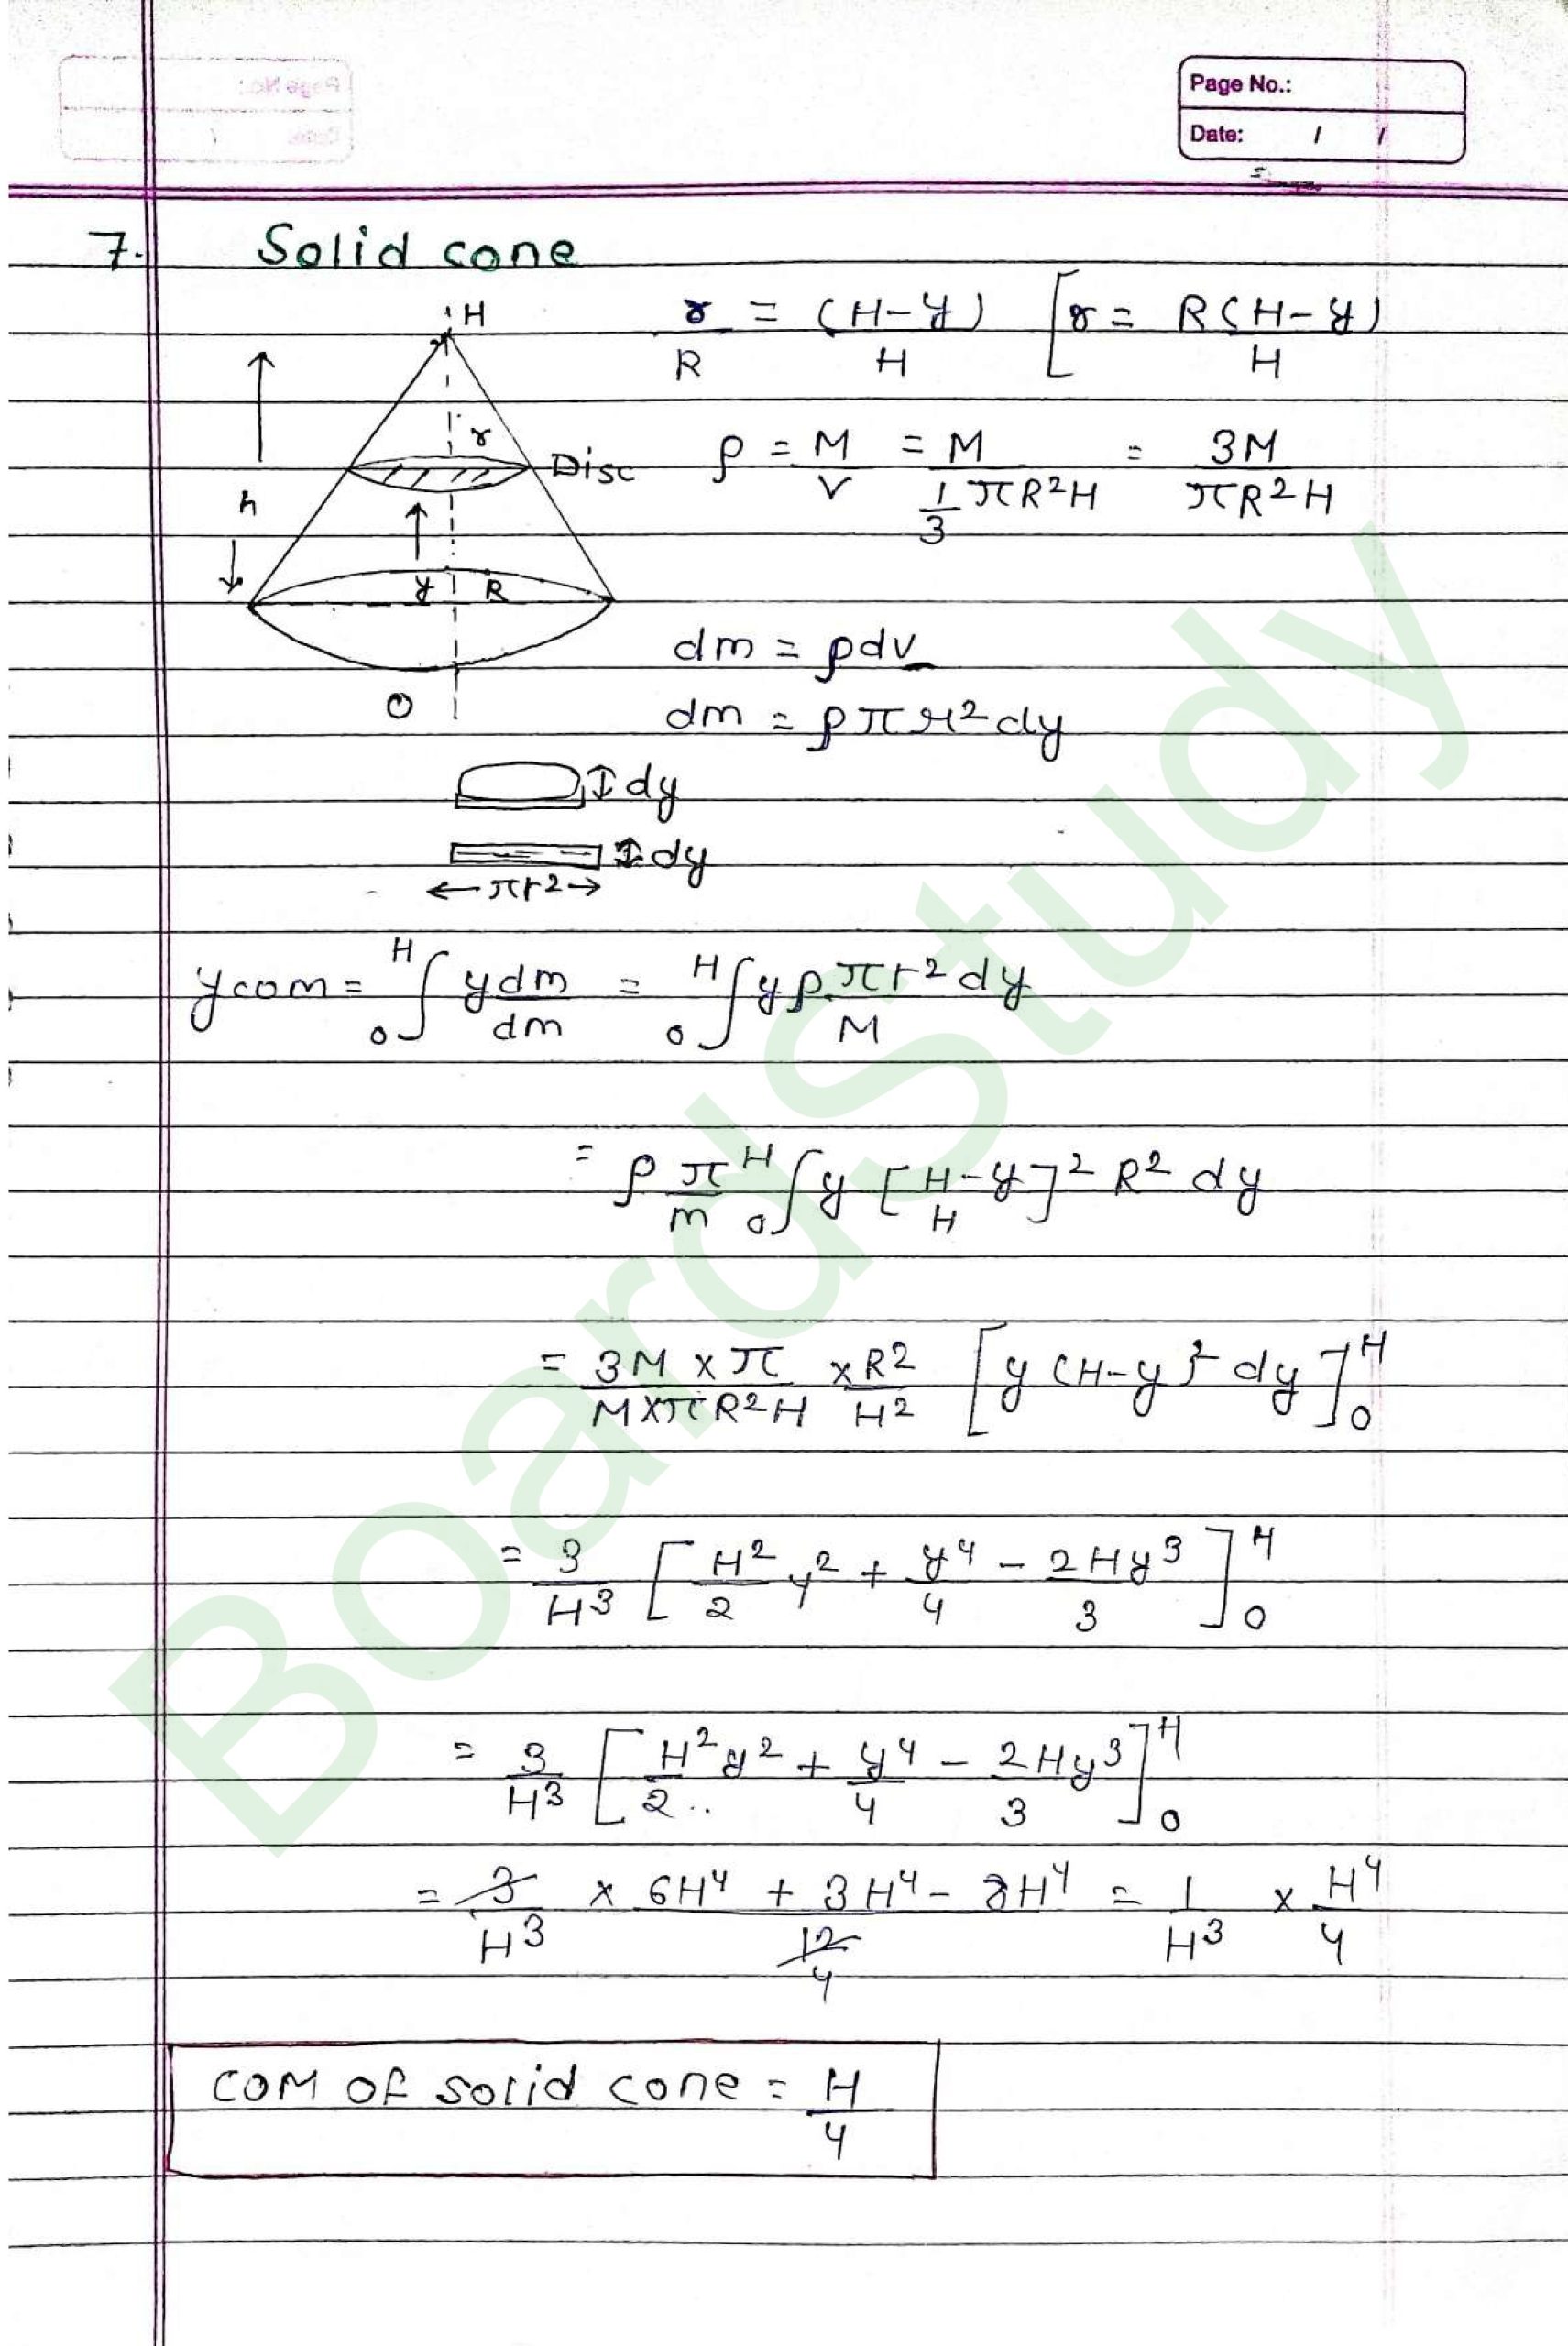 Page No.:
Date: / /
7. Solid cone
H
r/R = (H-y)/H [r = R(H-y)/H
r
Disc
ρ = M/V = M/(1/3 πR²H) = 3M/(πR²H)
h
y R
dm = ρdv
O
dm = ρπr²dy
dy
dy
← πr² →
ycom = ₀ᴴ∫ y dm/dm = ₀ᴴ∫ yρ πr² dy/M
= ρ π/m ₀ᴴ∫ y [H-y/H]² R² dy
= 3M × π/(M×πR²H) × R²/H² [y (H-y)² dy]₀ᴴ
= 3/H³ [H²/2 y² + y⁴/4 - 2Hy³/3]₀ᴴ
= 3/H³ [H²y²/2 + y⁴/4 - 2Hy³/3]₀ᴴ
= 3/H³ × (6H⁴ + 3H⁴ - 8H⁴)/12 4 = 1/H³ × H⁴/4
COM OF solid cone = H/4
BoardStudy